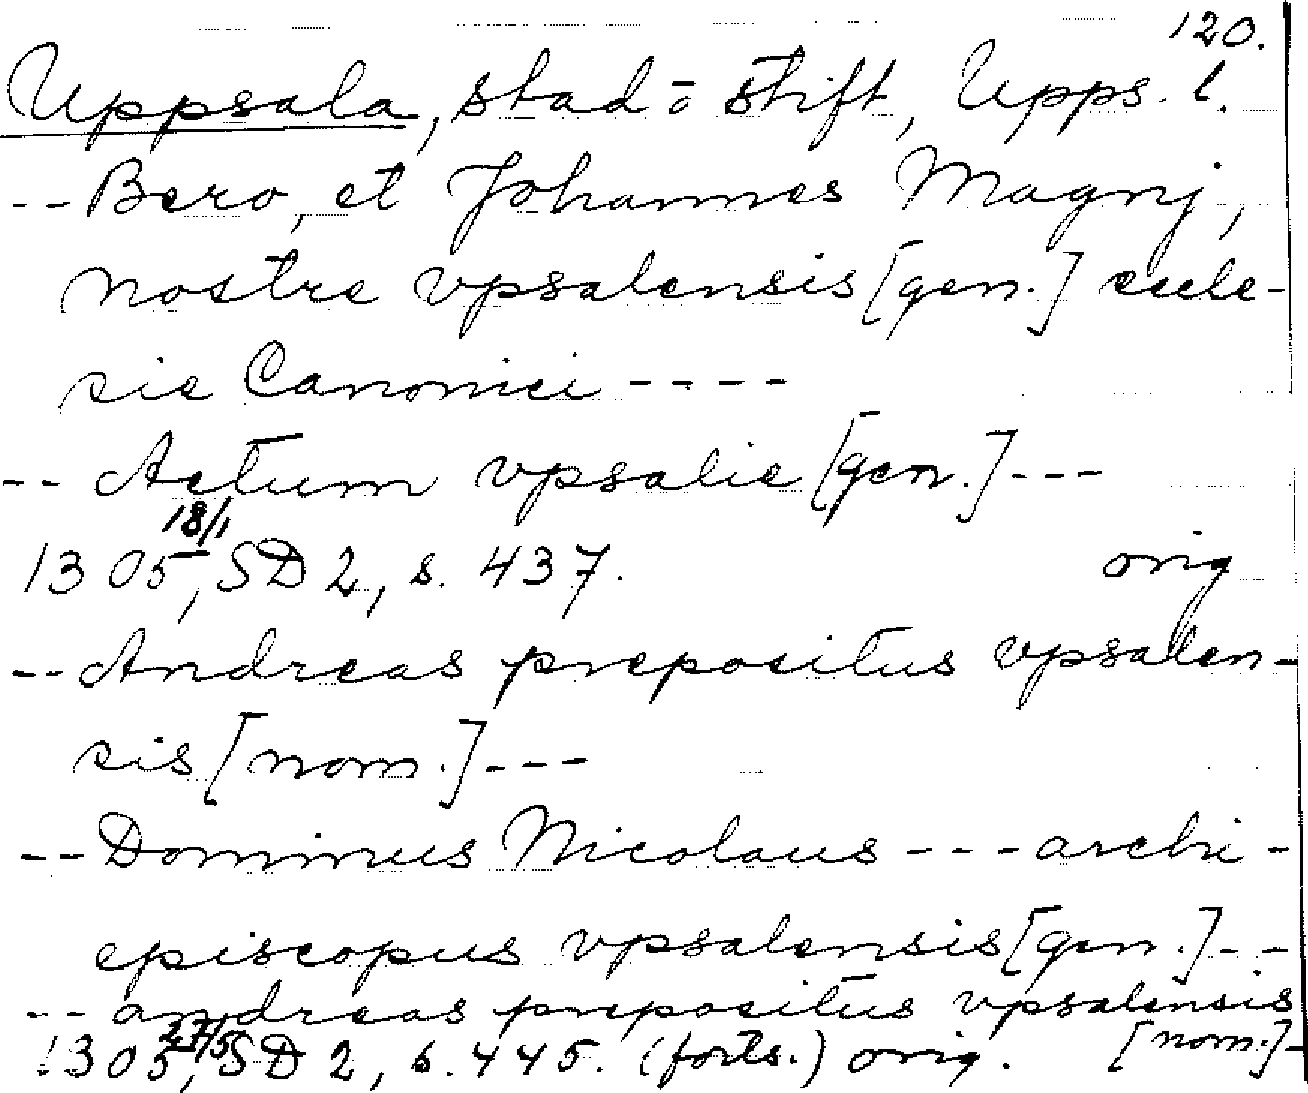 120.
Uppsala, stad o stift, Upps. l.
-- Bero, et Johannes Magnj,
nostre vpsalensis [gen.] eccle-
sie Canonici ----
-- Actum vpsalie [gen.] ---
18/1
1305, SD 2, s. 437. orig
-- Andreas prepositus vpsalen-
sis [nom.] ---
-- Dominus Nicolaus --- archi-
episcopus vpsalensis [gen.] --
-- andreas prepositus vpsalensis
[nom.]-
1305, 27/5 SD 2, s. 445. (forts.) orig.